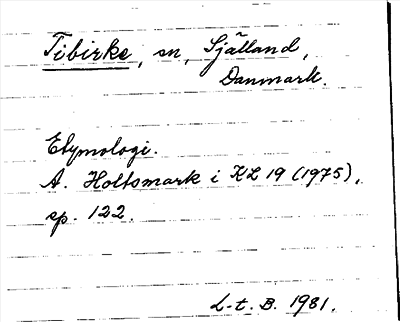 Tibirke, sn, Själland,
Danmark.
Etymologi.
A. Holtsmark i KL 19 (1975),
sp. 122.
L-t. B. 1981.